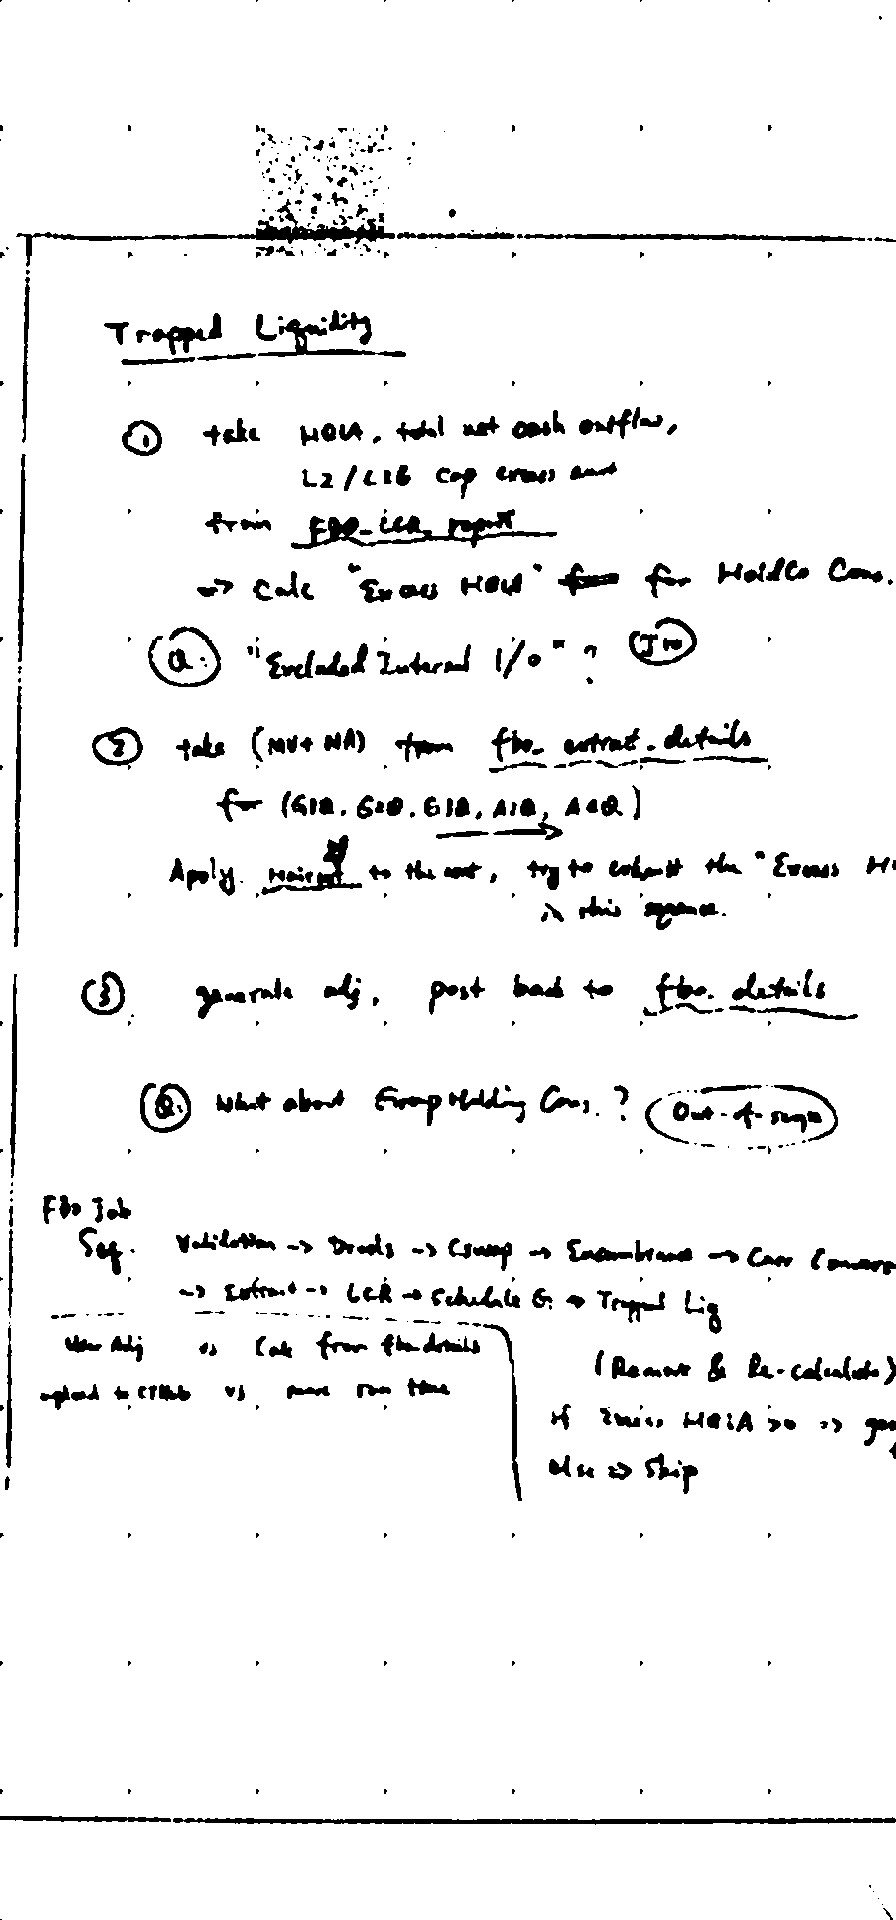 Trapped Liquidity
① take HQLA, total net cash outflow,
L2/L2B Cap excess amt
from FBO_LCR_report
=> Calc "Excess HQLA" for HoldCo Cons.
Q. "Excluded Internal I/O"?
② take (MV+NA) from fbo_extract_details
for (G1Q, G2Q, G3Q, A1Q, A2Q)
Apply Haircut to the amt, try to exhaust the "Excess
in this sequence.
③ generate adj, post back to fbo_details
Q. What about Group Holding Cons.? Out-of-scope
FBO Job
Seq. Validation -> Dreads -> Cswap -> Encumbrance -> Curr
-> Extract -> LCR -> Schedule G -> Trapped Liq
User Adj vs Calc from fbo details
upload to vs more run time
(Remove & Re-calculate)
if Excess HQLA >0 =>
else => Skip